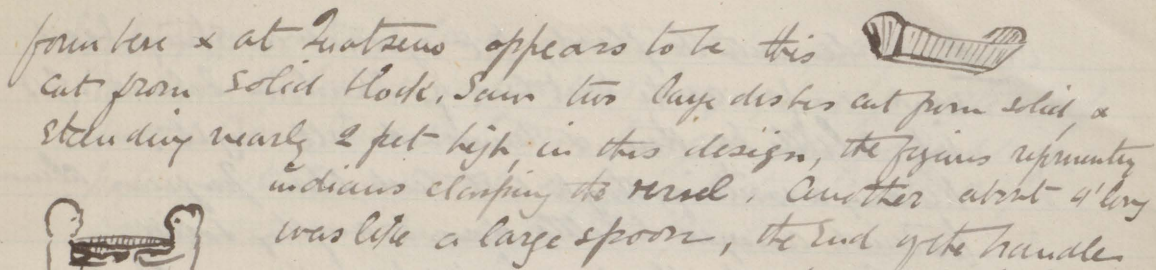 form here & at Quatseno appears to be this
cut from solid block. Saw two large dishes cut from solid, &
standing nearly 2 feet high, in this design, the figures representing
indians clasping the vessel. Another about 4' long
was like a large spoon, the end of the handle